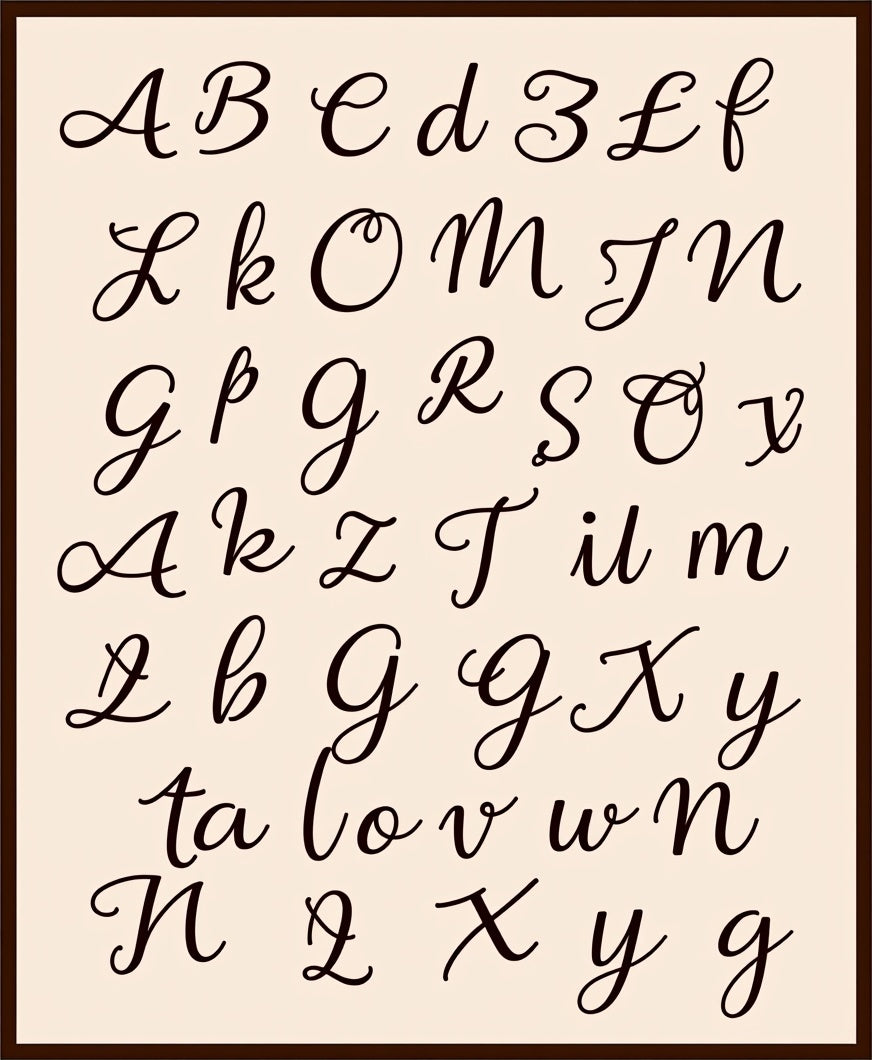 A B C d Z £ f
L k O M J N
G p g R S O x
A k z T il m
Q b G G X y
ta l o v w N
N Q X y g